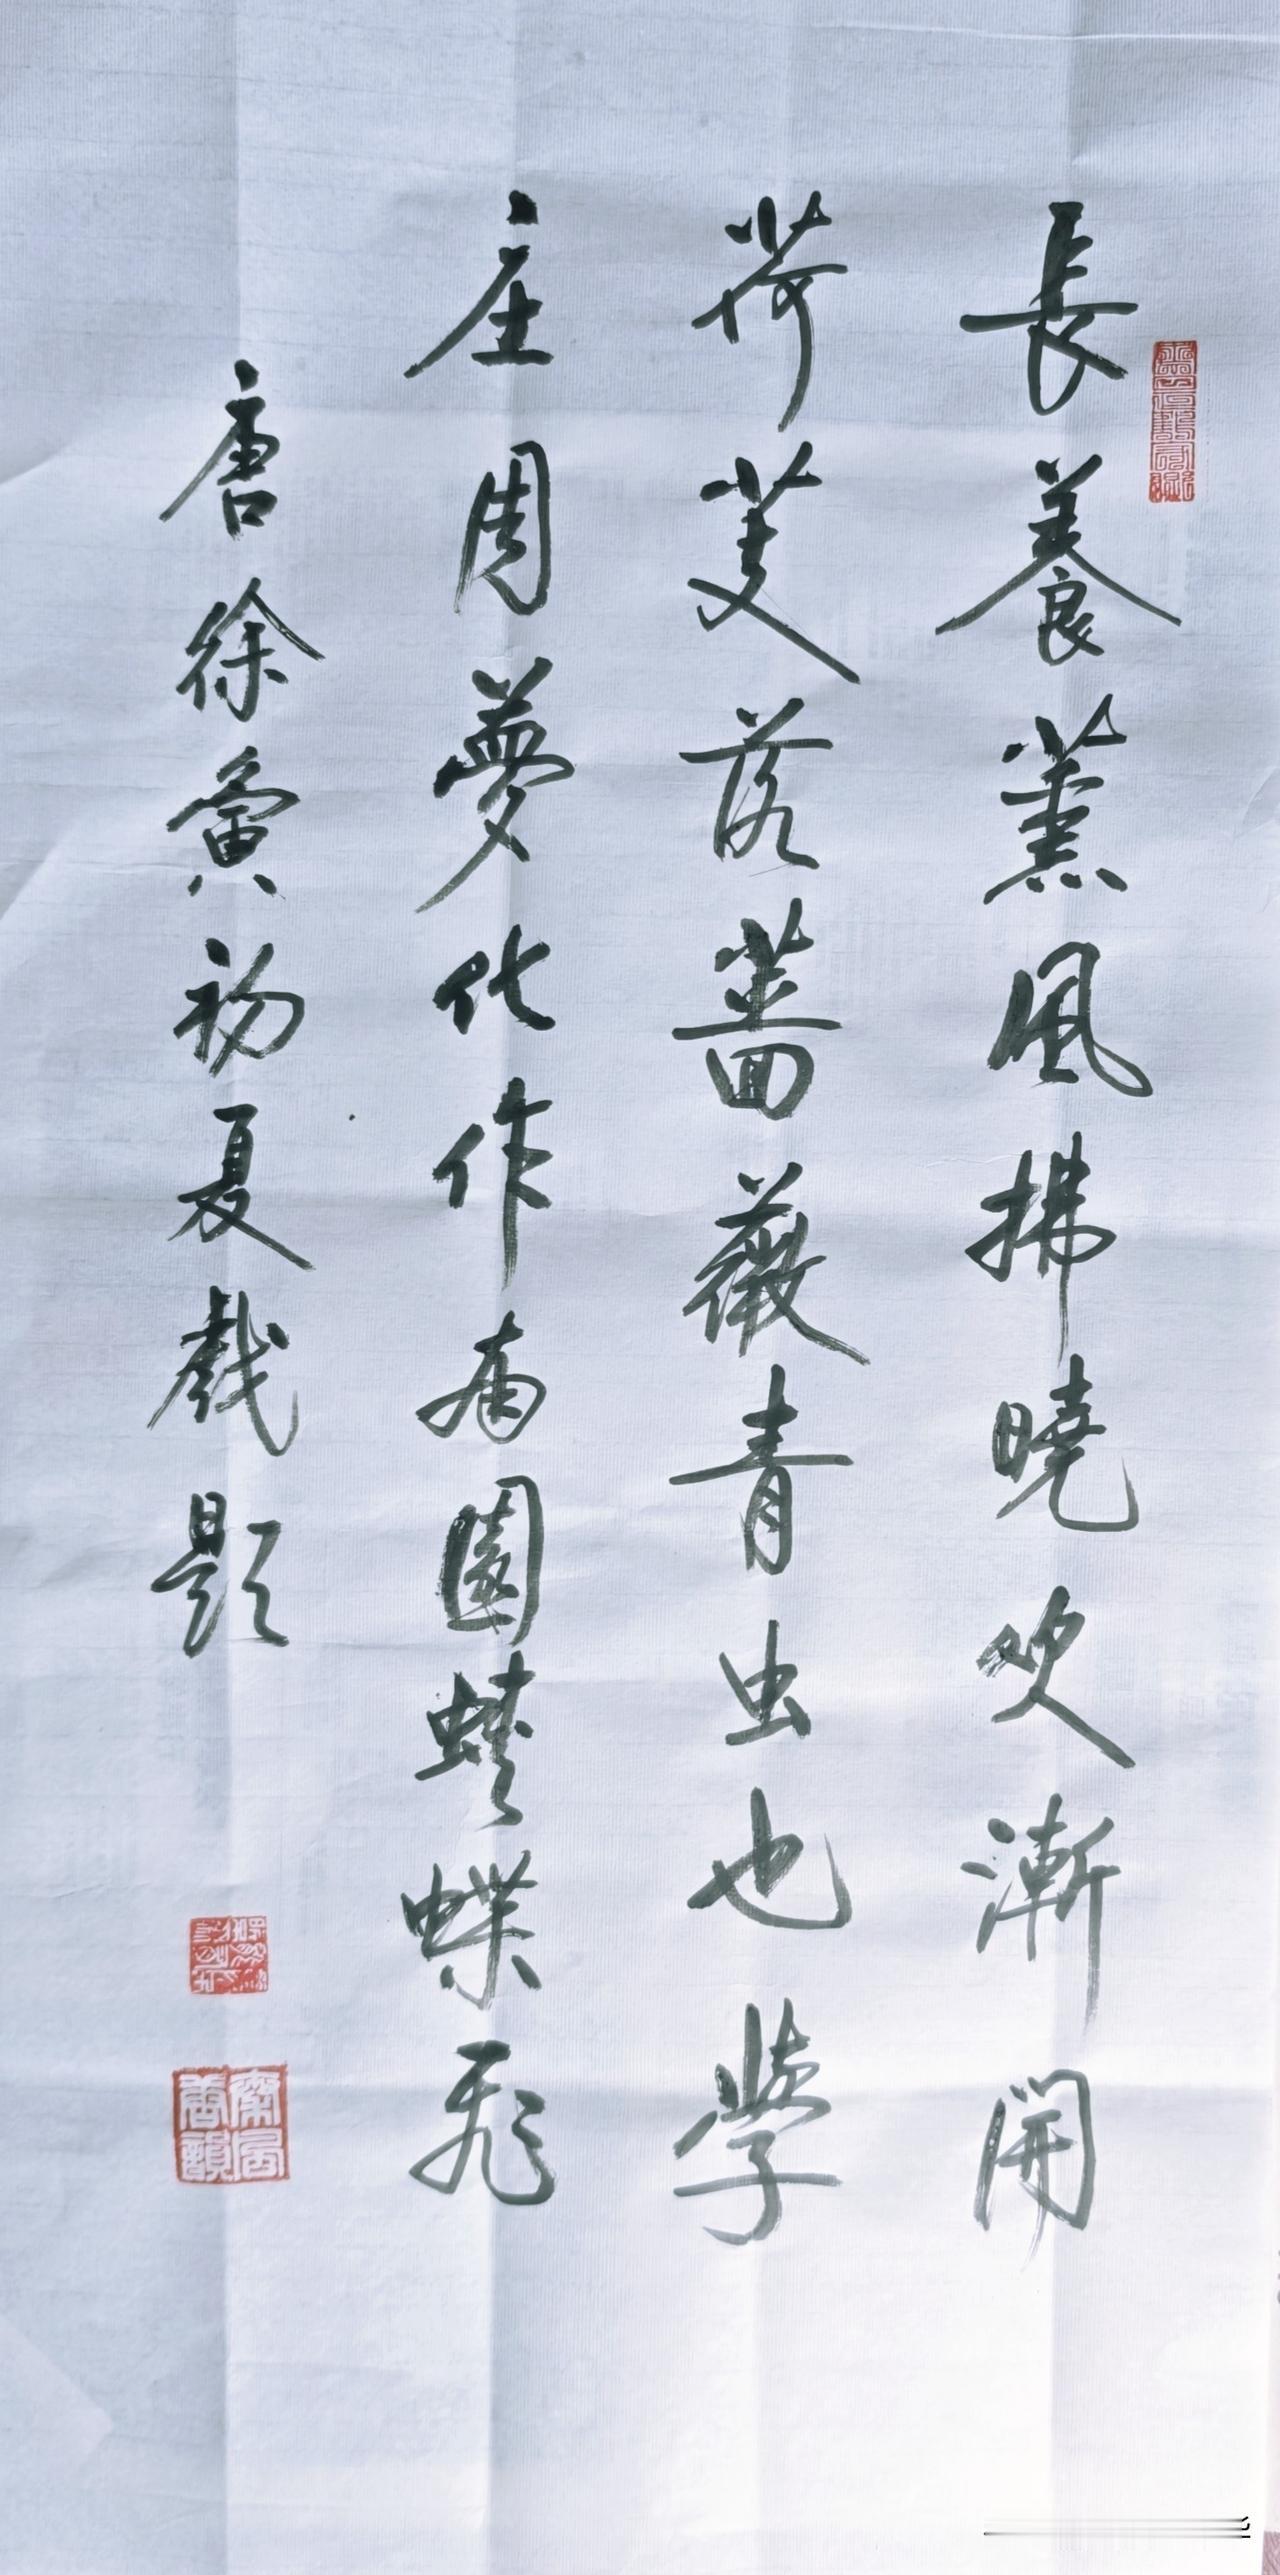 長養薰風拂曉吹漸開
荷芰落薔薇青虫也學
庄周夢化作南園蛱蝶飛
唐徐夤初夏戲題